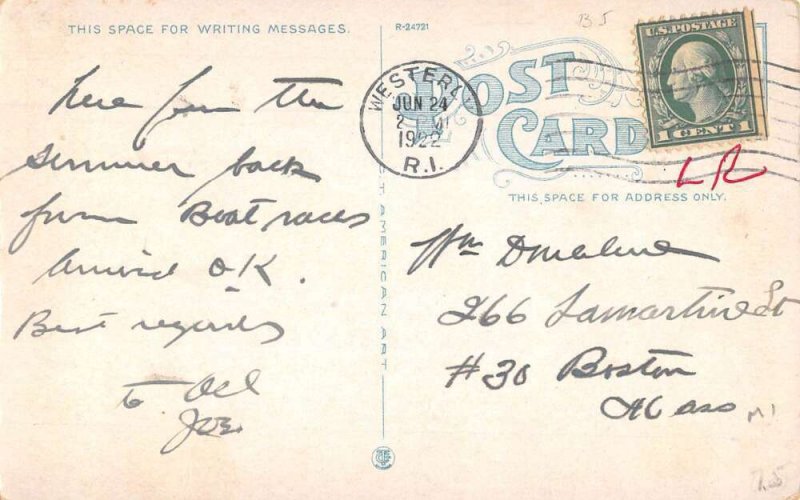 THIS SPACE FOR WRITING MESSAGES.
R-24721
B5
U.S. POSTAGE
1 CENT 1
WESTERLY
JUN 24
2
1922
R.I.
POST
CARD
LR
THIS SPACE FOR ADDRESS ONLY.
here for the
summer back
from Boat races
Arrived O.K.
Best regards
to All
Joe.
Wm
266 Lamartine St
#30 Boston
Mass